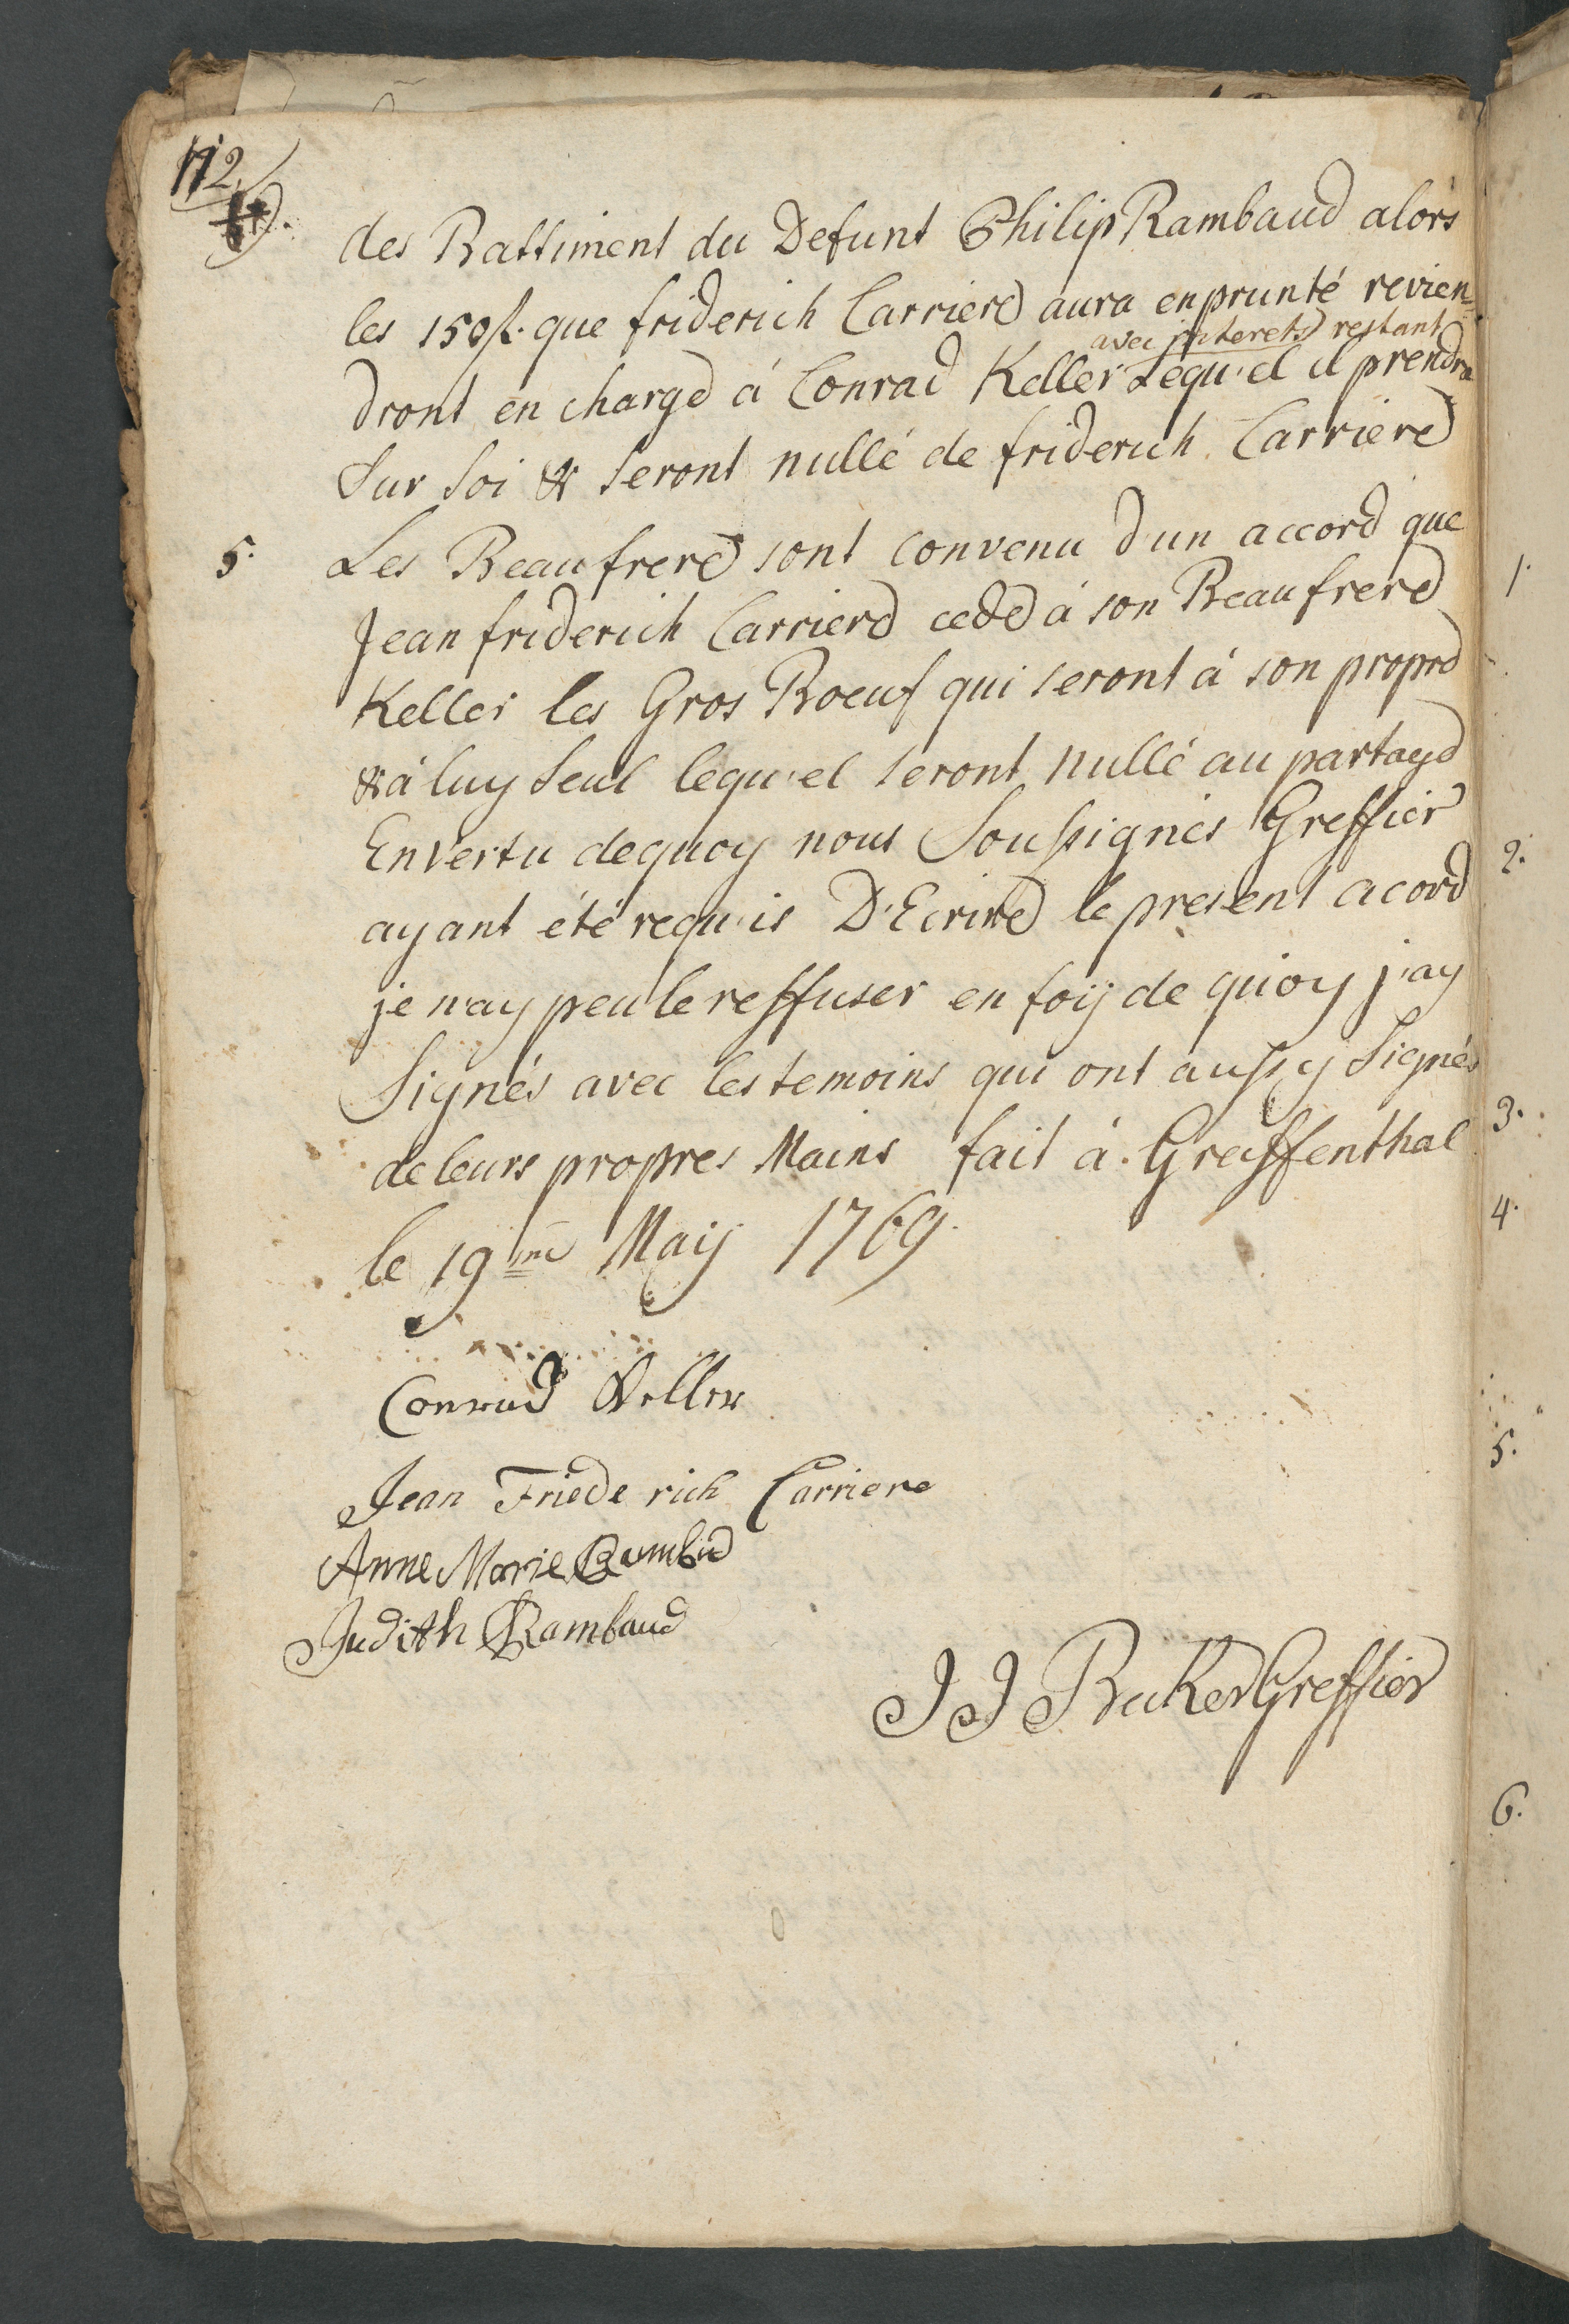 112.
des Battiment du Defunt Philip Rambaud alors
les 150 f. que friderich Carriere aura enprunté revien=
avec interets restant
dront en charge á Conrad Keller Lequ'el il prendra
Sur Soi & seront nullé de friderich Carriere
5. Les Beaufrere sont convenu d'un accord que
Jean friderich Carriere cede á son Beaufrere
Keller les Gros Boeuf qui seront á son propre
& á luy Seul lequ'el seront nullé au partage
En vertu de quoy nous Sousignés Greffier
ayant été requ'is D'Ecrire le present acord
je n'ay peu le reffuser en foÿ de quoy j'ay
Signés avec les temoins qui ont aussy Signés
de leurs propres Mains fait á Greiffenthal
le 19me Maÿ 1769.
Conrad Keller
Jean Friede rich Carriere
Anne Marie Rambud
Judith Rambaud
J J Becker Greffier
1.
2.
3.
4.
5.
6.